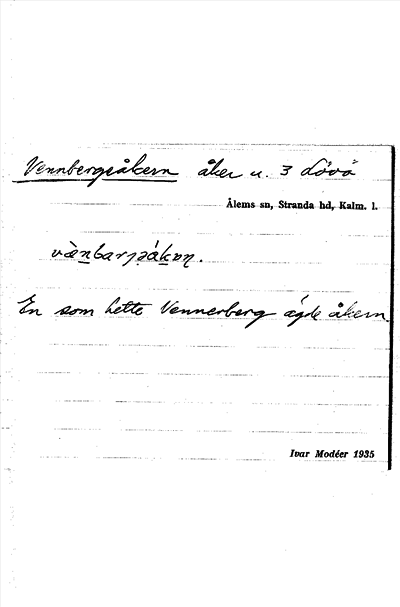 Vennbergsåkern åker u. 3 Lövö
Ålems sn, Stranda hd, Kalm. l.
En som hette Vennerberg ägde åkern.
Ivar Modéer 1935